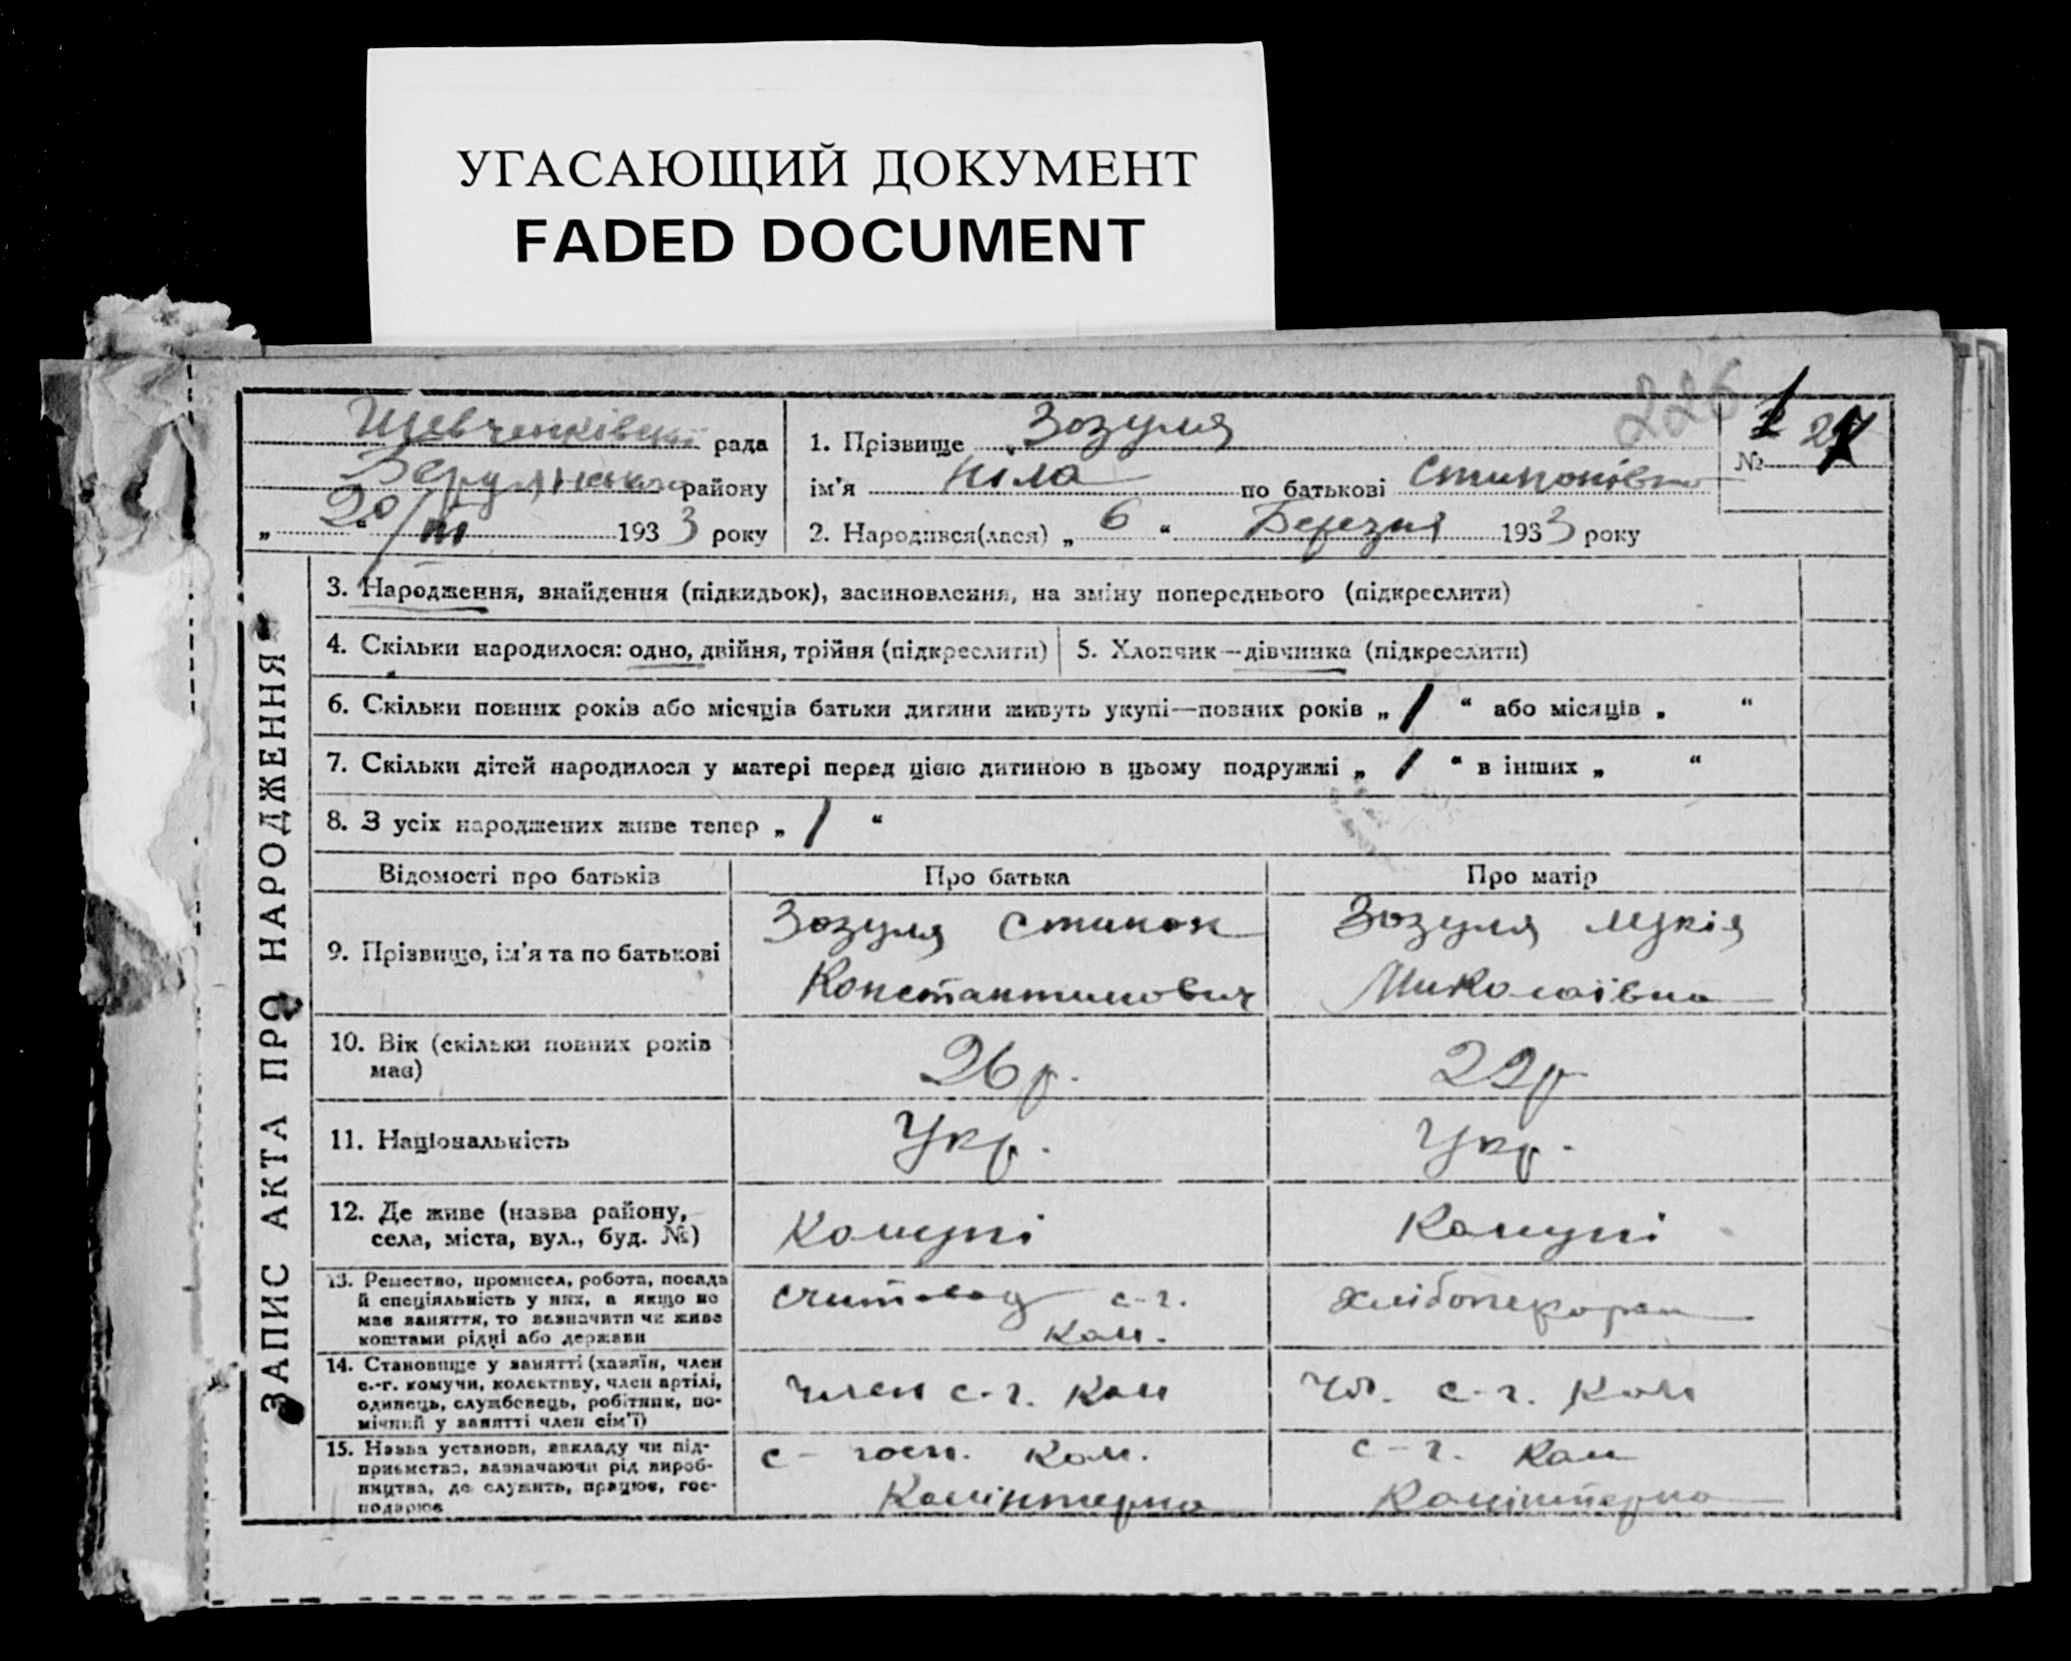 УГАСАЮЩИЙ ДОКУМЕНТ
FADED DOCUMENT
226
Шевченківській рада
району
„ 20 “ / III 1933 року
1. Прізвище Зозуля
ім'я Ніла по батькові Стипонівно
2. Народився(лася) „ 6 “ Березня 1933 року
№
ЗАПИС АКТА ПРО НАРОДЖЕННЯ
3. Народження, знайдення (підкидьок), засиновлення, на зміну попереднього (підкреслити)
4. Скільки народилося: одно, двійня, трійня (підкреслити)
5. Хлопчик—дівчинка (підкреслити)
6. Скільки повних років або місяців батьки дитини живуть укупі—повних років „ / “ або місяців „ “
7. Скільки дітей народилося у матері перед цією дитиною в цьому подружжі „ / “ в інших „ “
8. З усіх народжених живе тепер „ / “
Відомості про батьків Про батька Про матір
9. Прізвище, ім'я та по батькові
Зозуля Стипон
Константинович
Зозуля Лукія
Миколаївна
10. Вік (скільки повних років
має)
26 р.
22 р
11. Національність
Укр.
Укр.
12. Де живе (назва району,
села, міста, вул., буд. №)
Комуні
Комуні
13. Ремество, промисел, робота, посада
й спеціяльність у них, а якщо не
має заняття, то зазначити чи живе
коштами рідні або держави
с-г.
Ком.
14. Становище у занятті (хазяїн, член
с.-г. комучи, колективу, член артілі,
одинець, службовець, робітник, по-
мічний у занятті член сім'ї)
Член с-г. Ком
Чл. с-г. Ком
15. Назва установи, закладу чи під-
приємства, зазначаючи рід вироб-
ництва, де служить, працює, гос-
подарює
с-госп. Ком.
Комінтерна
с-г. Ком
Комінтерно